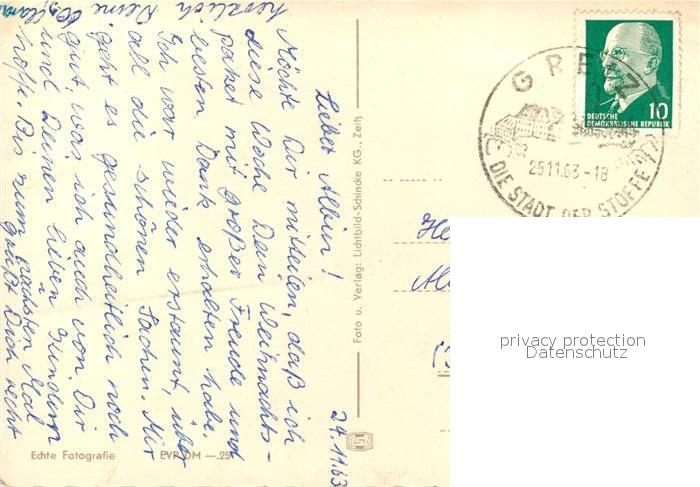 24.11.63
Lieber Albin!
Möchte Dir mitteilen, daß ich
diese Woche Dein Weihnachts-
paket mit großer Freude und
besten Dank erhalten habe.
Ich war wieder erstaunt, über
all die schönen Sachen. Mir
geht es gesundheitlich noch
gut, was ich auch von Dir
und Deinen lieben Kindern
hoffe. Bis zum nächsten Mal
grüßt Dich recht
herzlich Deine
Echte Fotografie
EVP DM —.25
Foto u. Verlag: Lichtbild-Schincke KG., Zeitz
GREIZ
25.11.63-18
DIE STADT DER STOFFE
DEUTSCHE
DEMOKRATISCHE REPUBLIK
10
privacy protection
Datenschutz